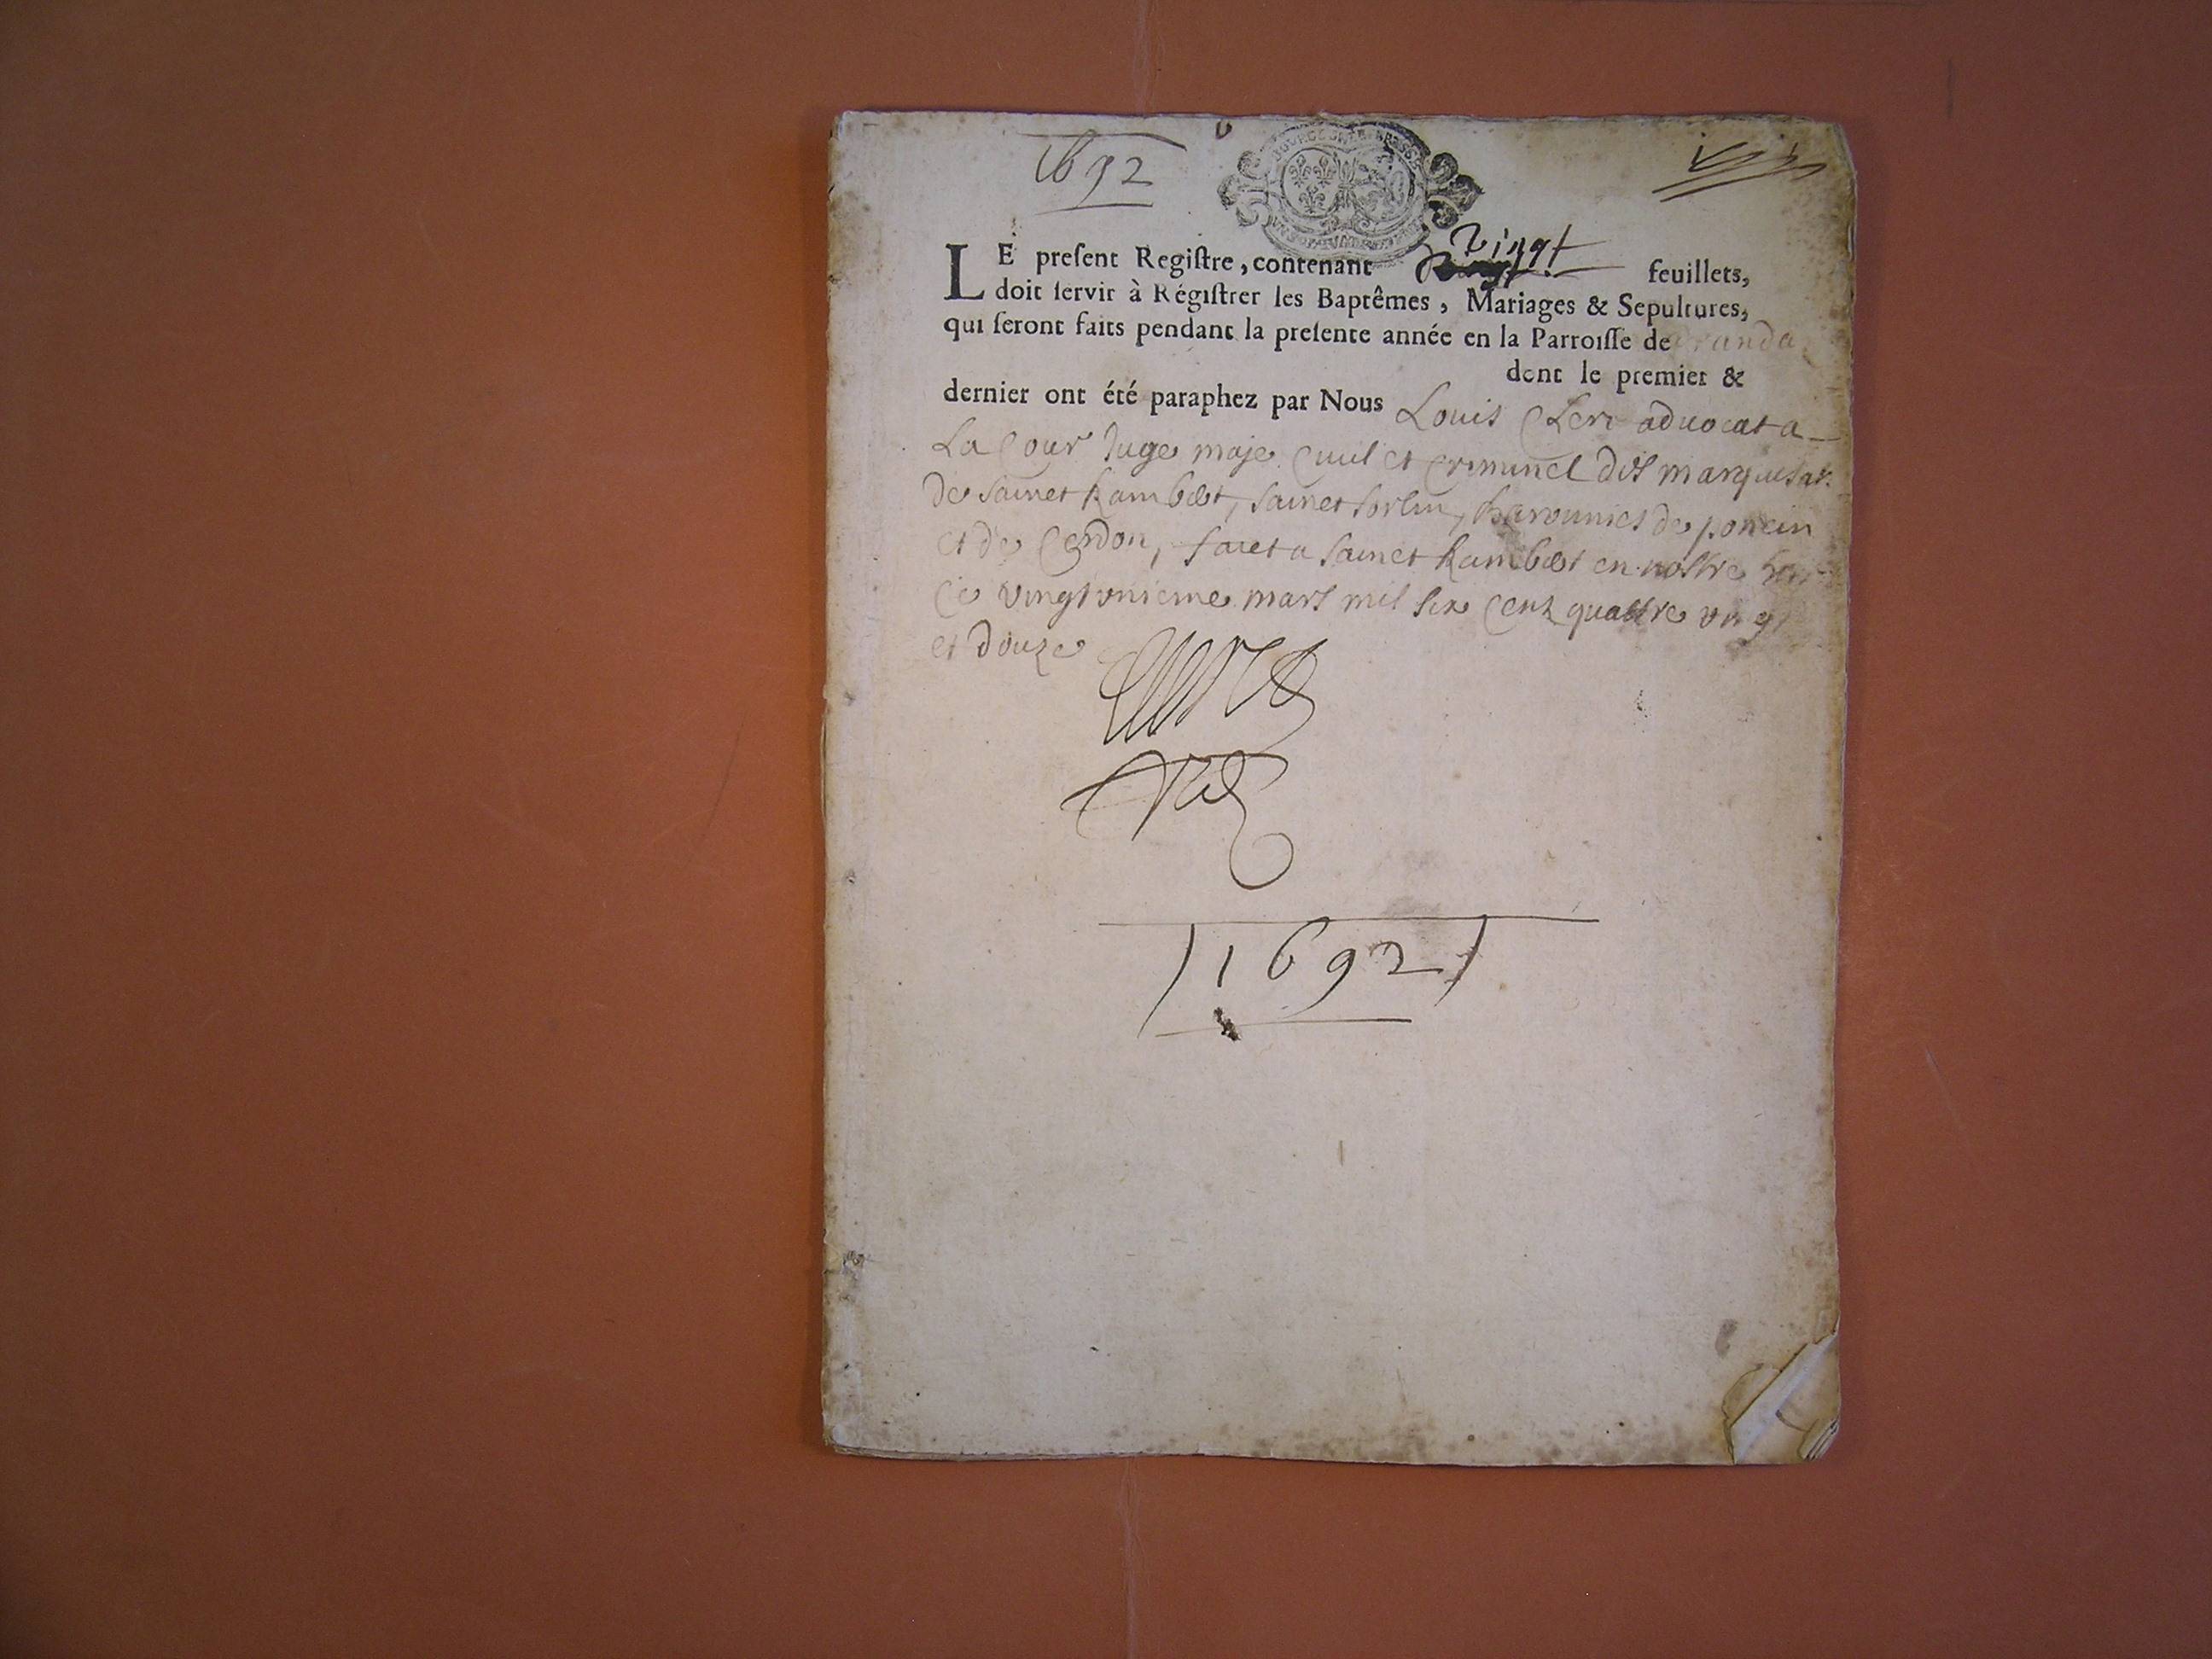 1692
LE present Registre, contenant vingt feuillets,
doit servir à Régistrer les Baptêmes, Mariages & Sepultures,
qui seront faits pendant la presente année en la Parroisse de
dont le premier &
dernier ont été paraphez par Nous Louis Clerc advocat a
La Cour Juge maje Civil et Criminel des marquisat
de Sainct Rambert, Sainct Sorlin, barounies de poncin
et de Cerdon, faict a Sainct Rambert en nostre
Ce vingt unieme mars mil six Centz quattre vingt
et douze
1692